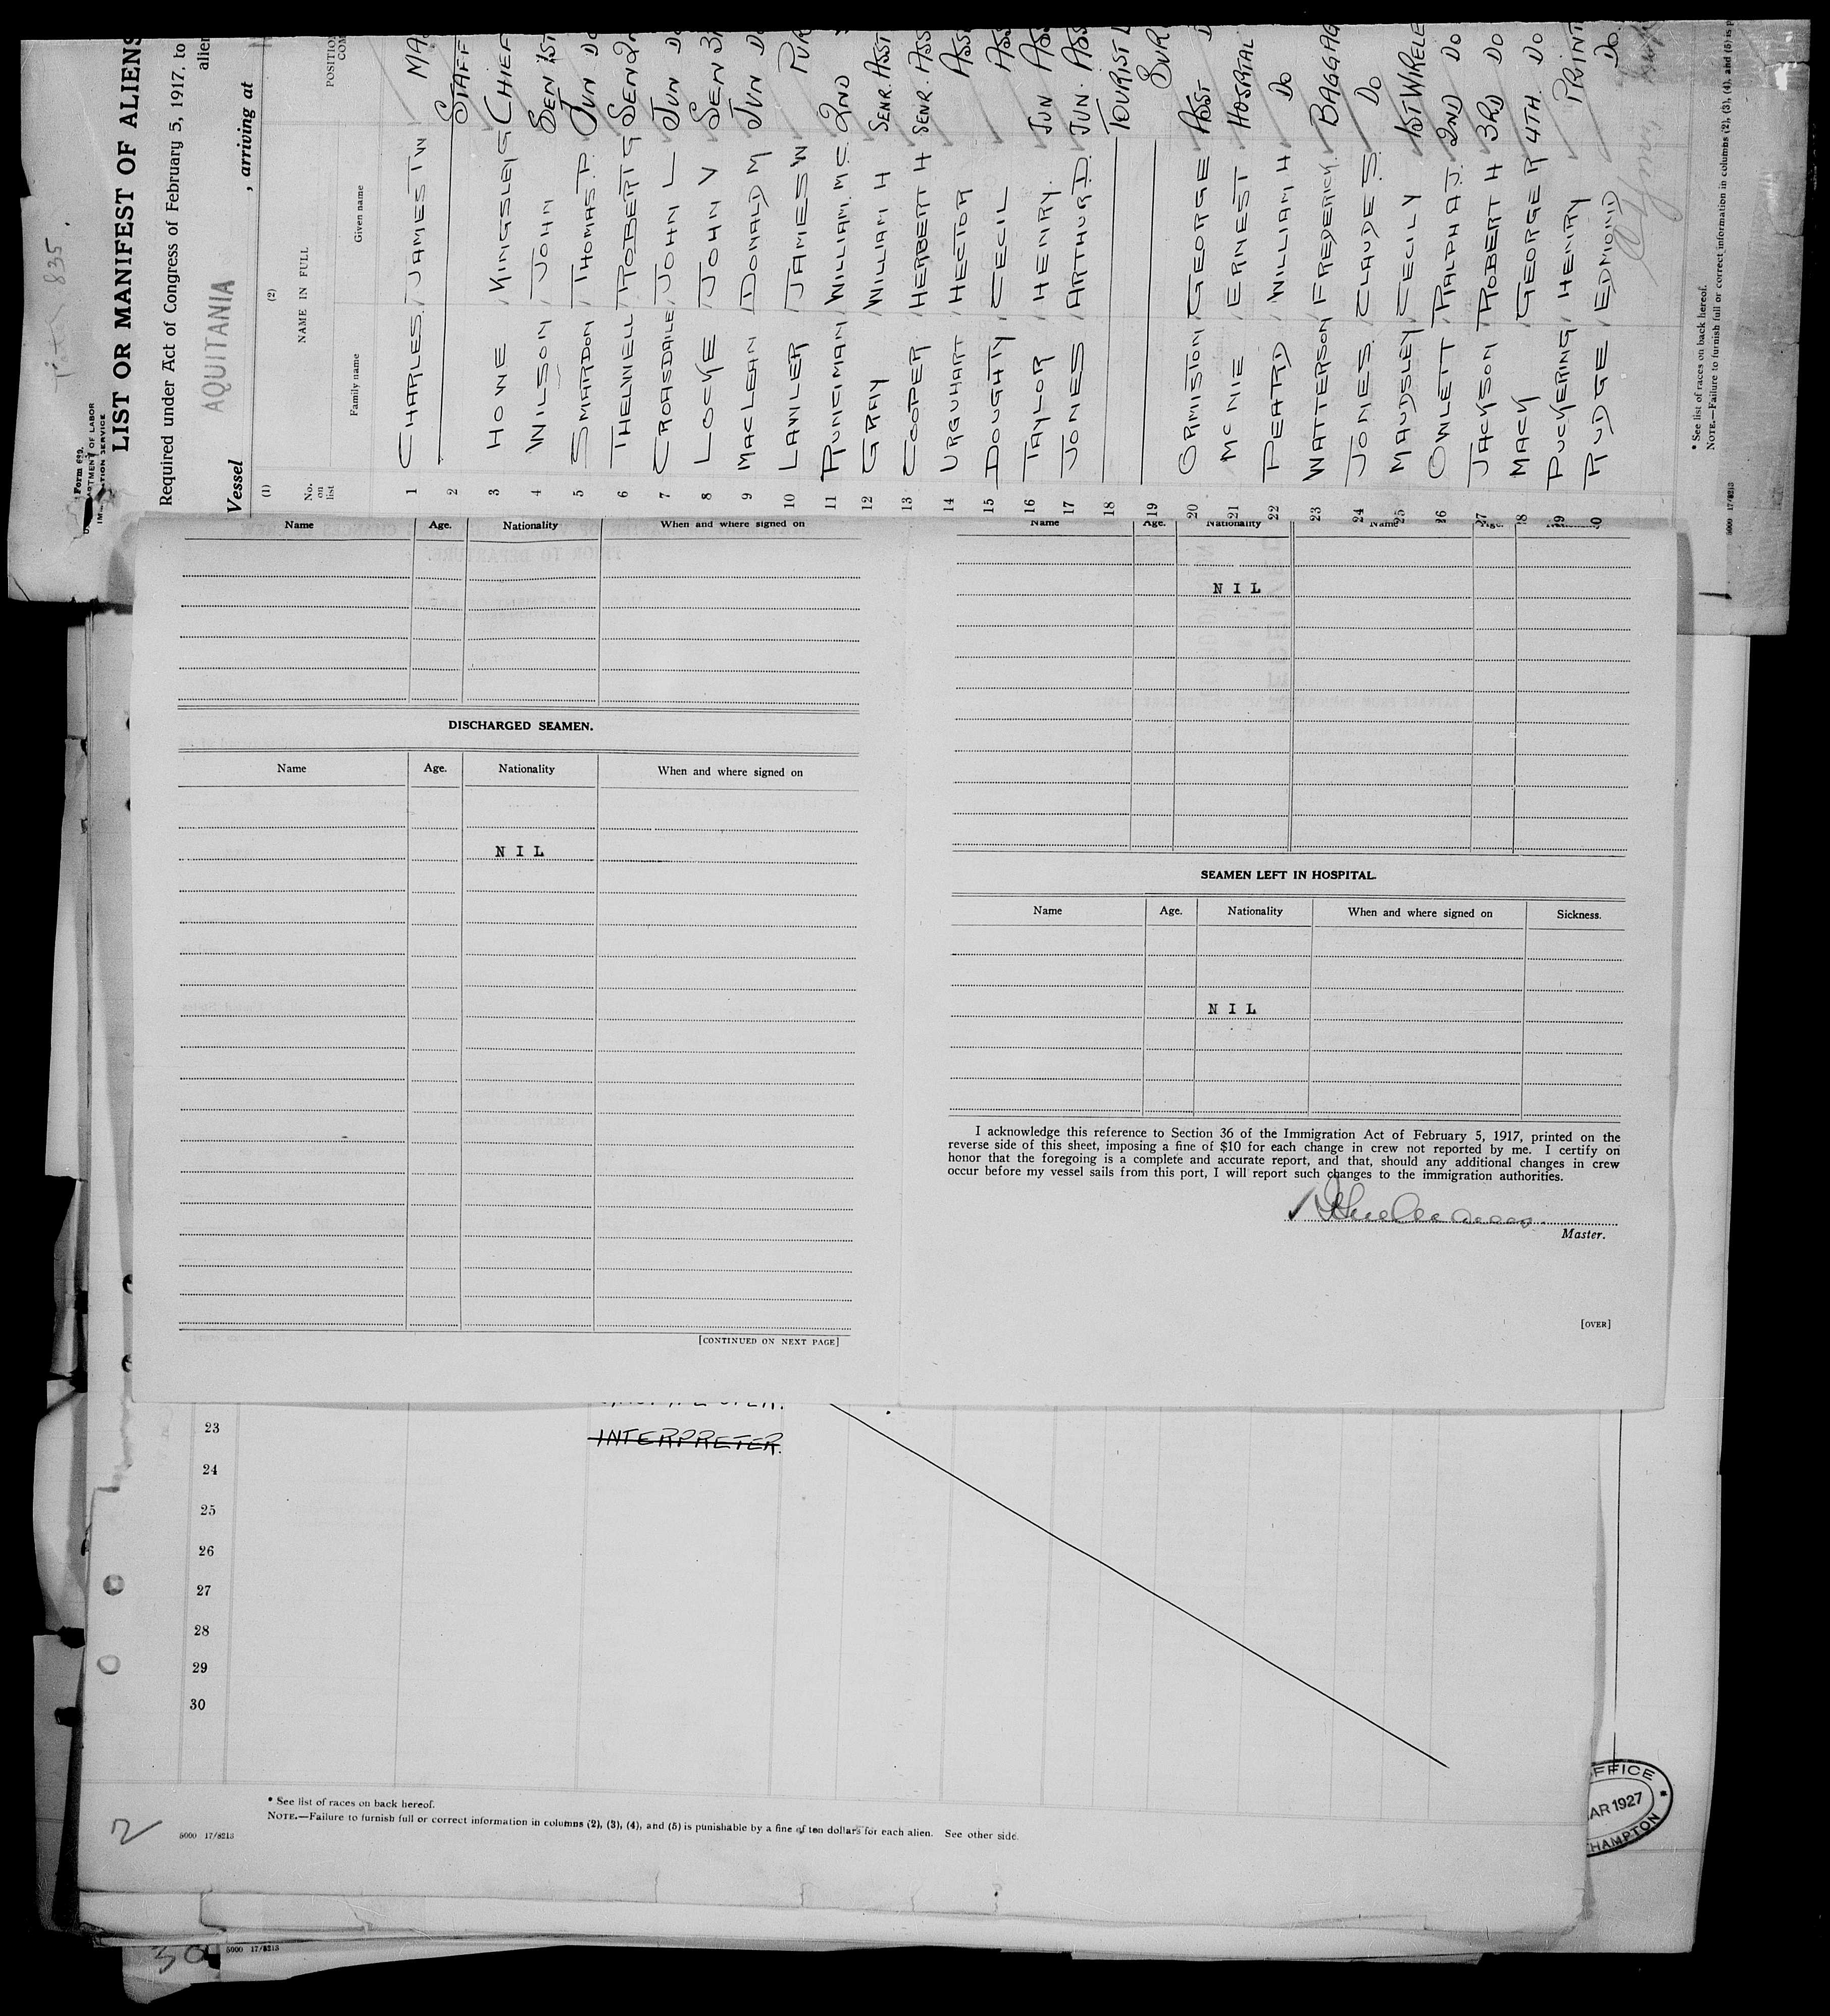 Form 689.
LIST OR MANIFEST OF ALIENS
Required under Act of Congress of February 5, 1917, to
alien
Vessel AQUITANIA , arriving at
(1) (2)
No. on list NAME IN FULL
Family name Given name
1 CHARLES JAMES T W MA
2 STAFF
3 HOWE KINGSLEY G CHIEF
4 WILSON JOHN SEN 1ST
5 SMARDON THOMAS P. JUN DO
6 THELWELL ROBERT G SEN 2N
7 CROASDAILE JOHN L JUN DO
8 LOCKE JOHN V SEN 3R
9 MACLEAN DONALD M JUN DO
10 LAWLER JAMES W PUR
11 RUNCIMAN WILLIAM. MC. 2ND
12 GRAY WILLIAM H SENR. ASST
13 COOPER HERBERT H SENR. ASS
14 URQUHART HECTOR ASS
15 DOUGHTY CECIL ASS
16 TAYLOR HENRY. JUN ASS
17 JONES ARTHUR D. JUN. ASS
18 TOURIST
19 BUR
20 ORMISTON GEORGE ASST D
21 MCNIE ERNEST HOSPITAL
22 PEARD WILLIAM H DO
23 WATTERSON FREDERICK. BAGGAG
24 JONES. CLAUDE S. DO
25 MAUDSLEY CECIL Y 1ST WIRELE
26 OWLETT RALPH A J. 2ND DO
27 JACKSON ROBERT H 3RD DO
28 MACK GEORGE R 4TH. DO
29 PUCKERING HENRY PRINT
30 RUDGE EDMOND DO.
* See list of races on back hereof.
NOTE.—Failure to furnish full or correct information in columns (2), (3), (4), and (5) is p
5000 17/8213
Name Age. Nationality When and where signed on
DISCHARGED SEAMEN.
Name Age. Nationality When and where signed on
NIL
[CONTINUED ON NEXT PAGE]
Name Age. Nationality Name Age.
NIL
SEAMEN LEFT IN HOSPITAL.
Name Age. Nationality When and where signed on Sickness.
NIL
I acknowledge this reference to Section 36 of the Immigration Act of February 5, 1917, printed on the
reverse side of this sheet, imposing a fine of $10 for each change in crew not reported by me. I certify on
honor that the foregoing is a complete and accurate report, and that, should any additional changes in crew
occur before my vessel sails from this port, I will report such changes to the immigration authorities.
Master.
[OVER]
23
INTERPRETER.
24
25
26
27
28
29
30
* See list of races on back hereof.
NOTE.—Failure to furnish full or correct information in columns (2), (3), (4), and (5) is punishable by a fine of ten dollars for each alien. See other side.
2
5000 17/8213
FFICE
AR 1927
HAMPTON
30
5000 17/8213